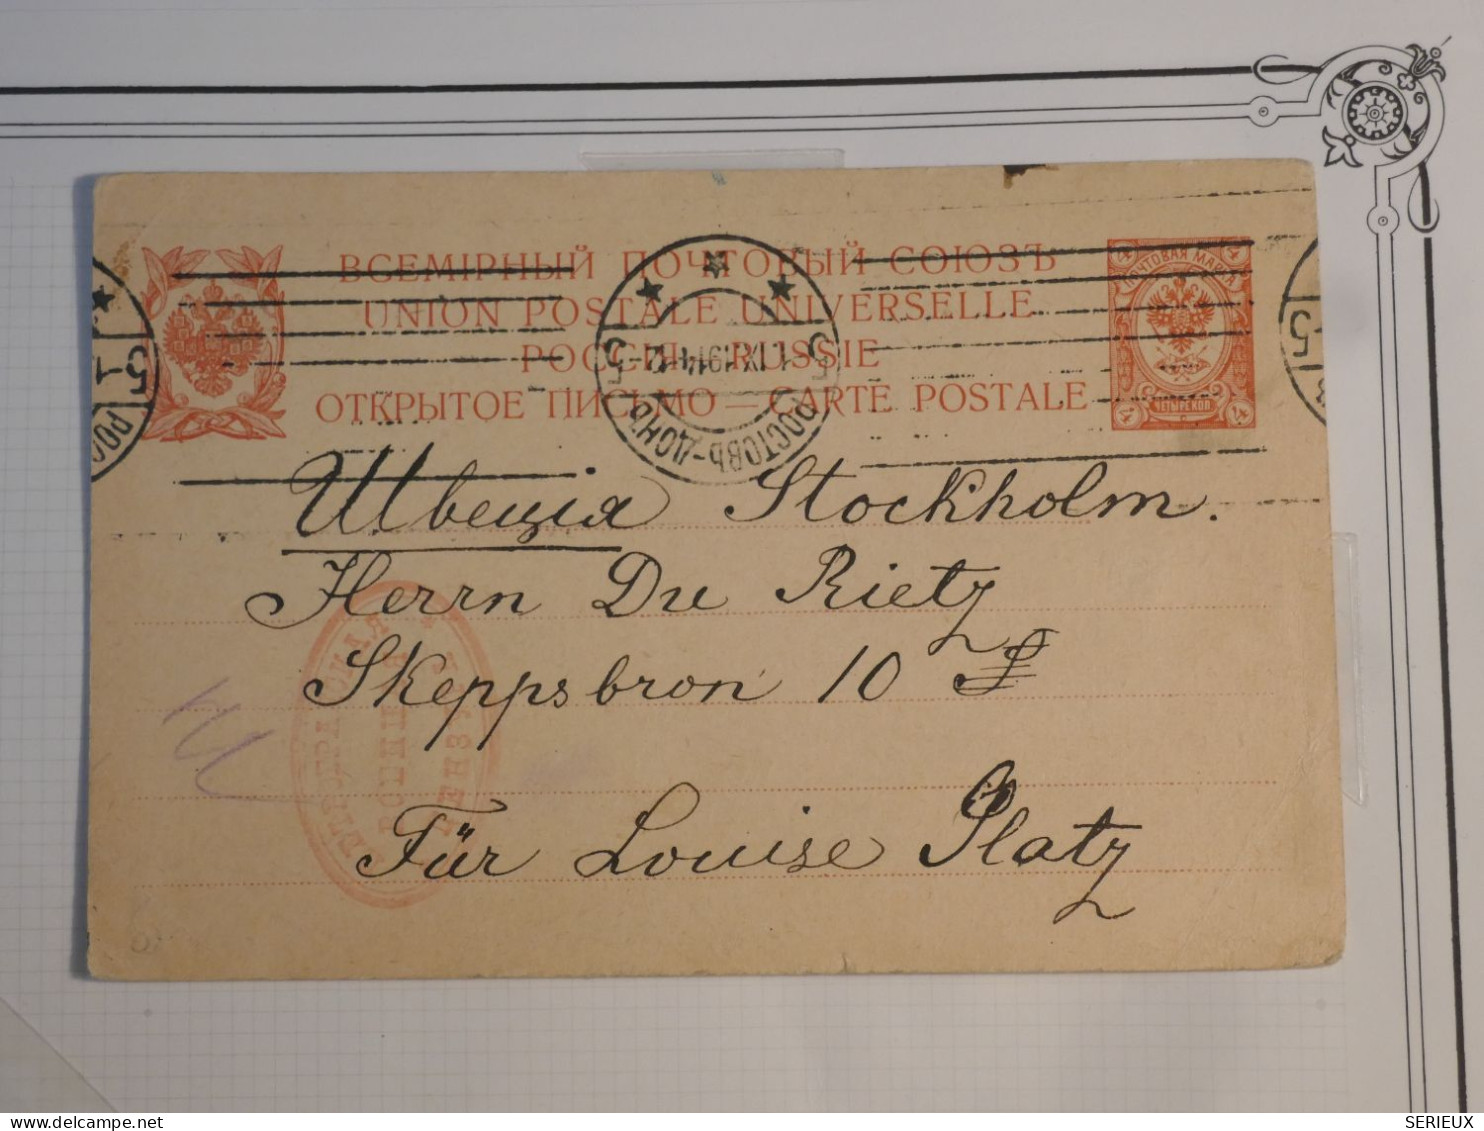 ВСЕМІРНЫЙ ПОЧТОВЫЙ СОЮЗЪ
UNION POSTALE UNIVERSELLE
РОССІЯ RUSSIE
ОТКРЫТОЕ ПИСЬМО — CARTE POSTALE
ПОЧТОВАЯ МАРКА
4 4
4 ЧЕТЫРЕ КОП 4
5 5
РОСТОВЪ-ДОНЪ
5
5
Швеція Stockholm.
Herrn Du Rietz
Skeppsbron 10
Für Louise Platz
delcampe.net
SERIEUX